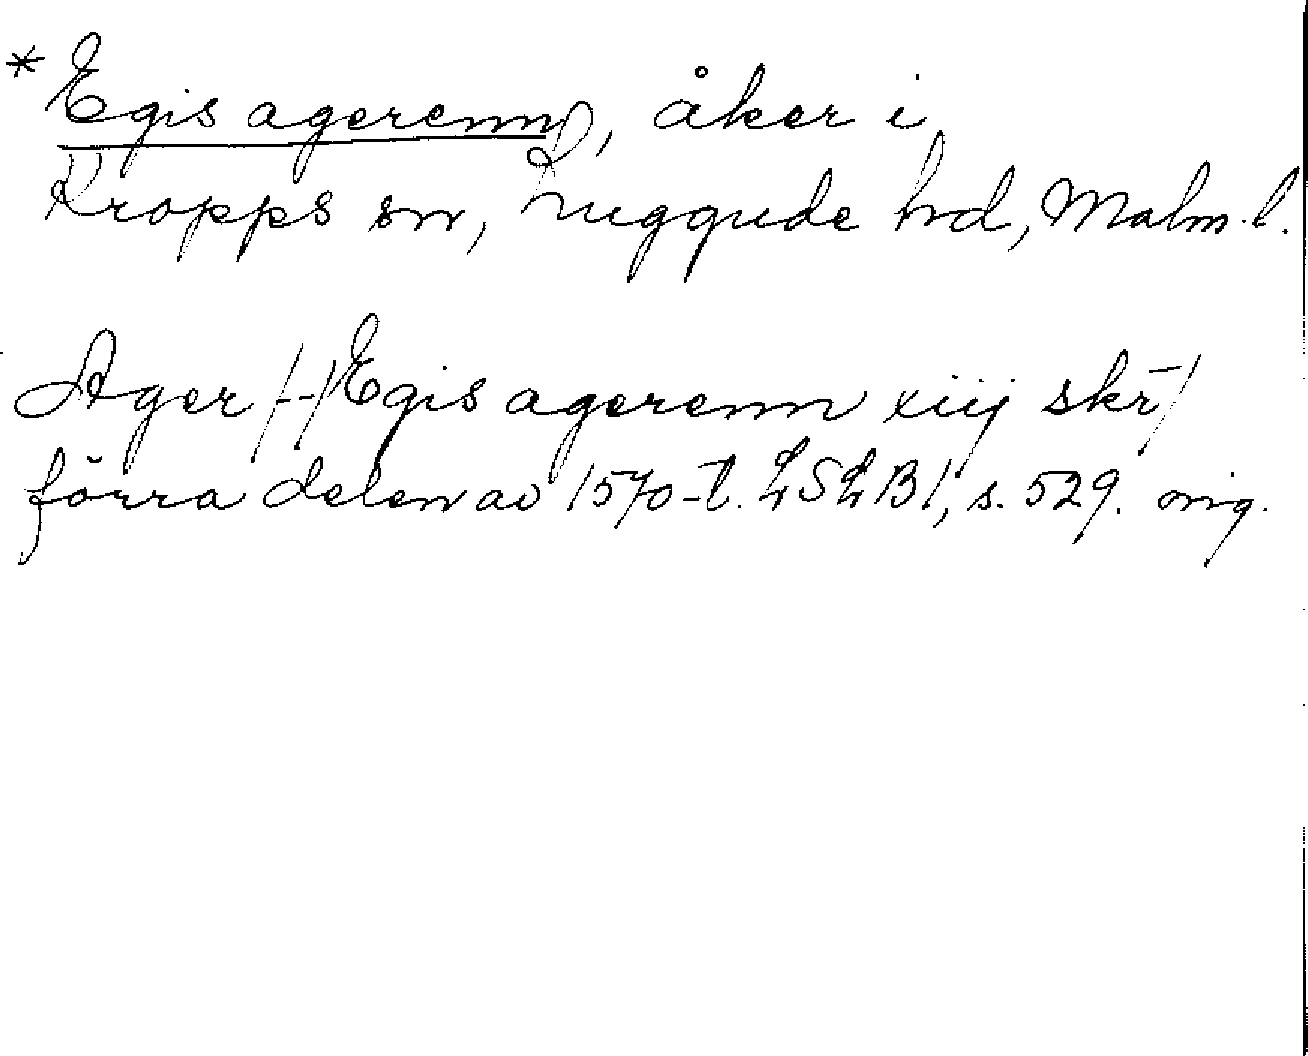 * Egis agerenn, åker i
Kropps sn, Luggude hd, Malm. l.
Ager /--/ Egis agerenn xiij skr̄/
förra delen av 1570-t. LSLB1, s. 529. orig.